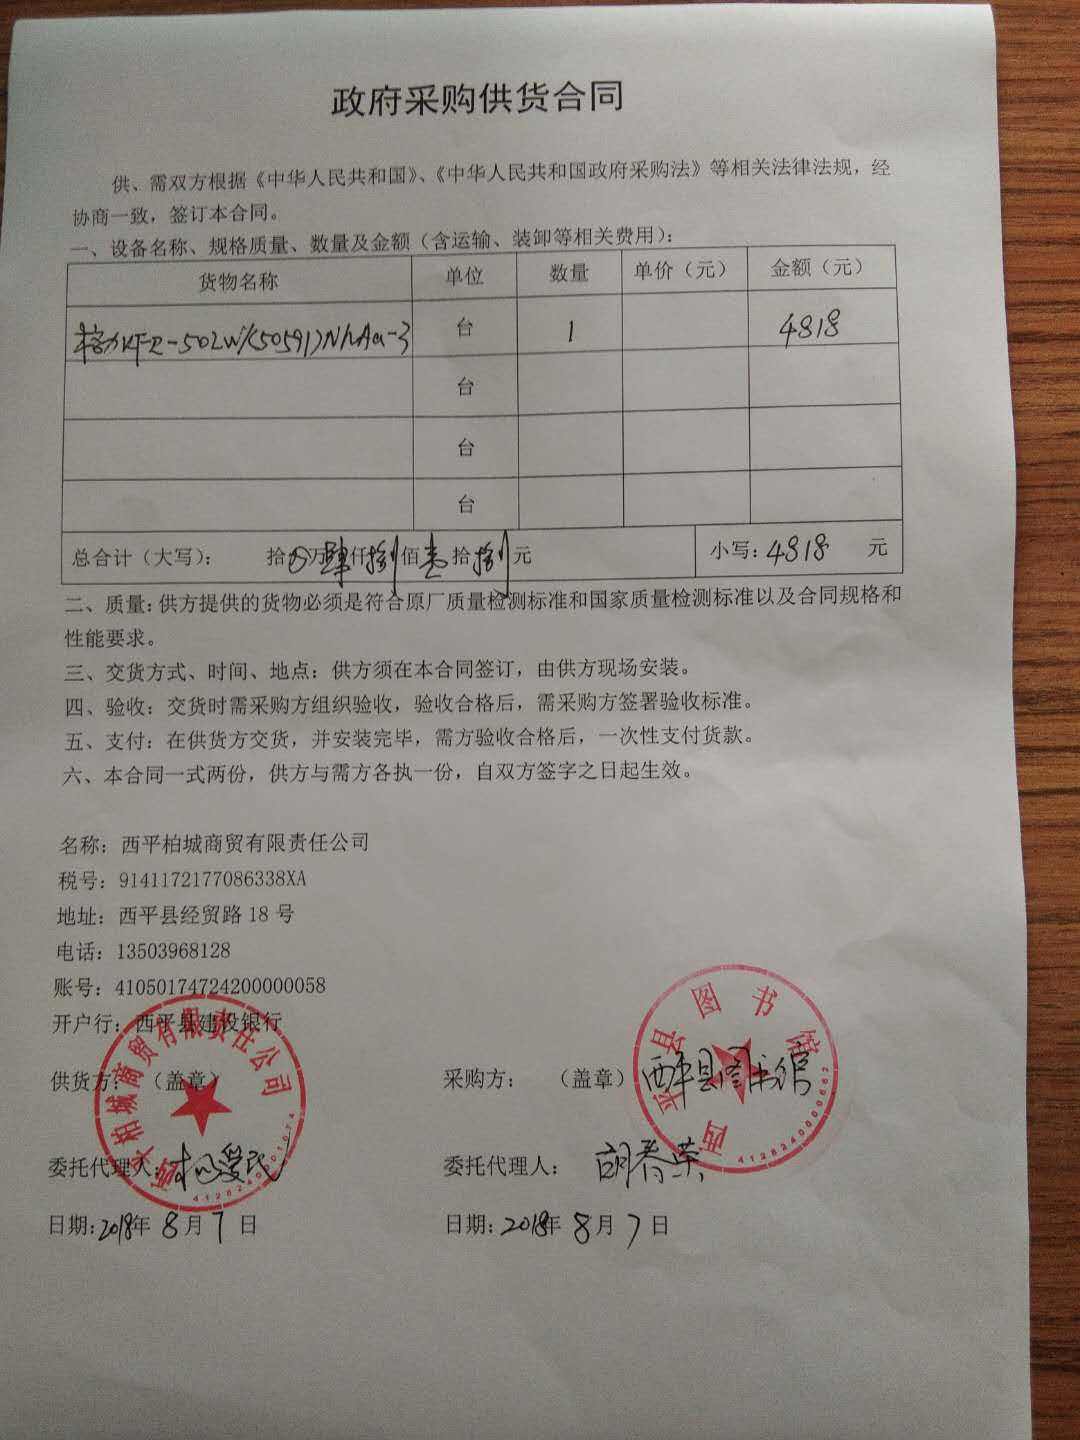 政府采购供货合同
供、需双方根据《中华人民共和国》、《中华人民共和国政府采购法》等相关法律法规，经
协商一致，签订本合同。
一、设备名称、规格质量、数量及金额（含运输、装卸等相关费用）：
货物名称 单位 数量 单价（元） 金额（元）
格力KFR-50LW/(50591)NhAa-3 台 1 4818
台
台
台
总合计（大写）： 拾 万肆仟捌佰壹拾捌元 小写：4818 元
二、质量：供方提供的货物必须是符合原厂质量检测标准和国家质量检测标准以及合同规格和
性能要求。
三、交货方式、时间、地点：供方须在本合同签订，由供方现场安装。
四、验收：交货时需采购方组织验收，验收合格后，需采购方签署验收标准。
五、支付：在供货方交货，并安装完毕，需方验收合格后，一次性支付货款。
六、本合同一式两份，供方与需方各执一份，自双方签字之日起生效。
名称：西平柏城商贸有限责任公司
税号：9141172177086338XA
地址：西平县经贸路 18 号
电话：13503968128
账号：41050174724200000058
开户行：西平县建设银行
供货方：（盖章） 采购方：（盖章）西平县图书馆
西平柏城商贸有限责任公司
西平县图书馆
4128240000662
委托代理人： 委托代理人：胡春荣
日期：2018年 8 月 7 日 日期：2018年 8 月 7 日